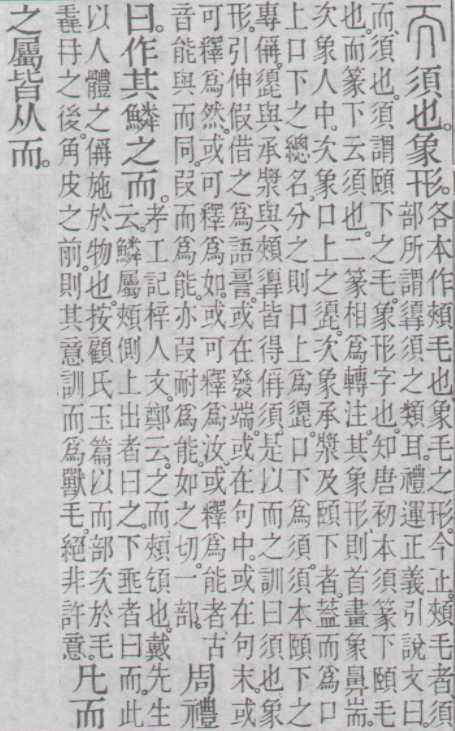 須也。象形。
各本作頰毛也。象毛之形。今正。頰毛者、須
部所謂䫇須之類耳。禮運正義引說文曰。
而、須也。須謂頤下之毛。象形字也。知唐初本須篆下頤毛
也。而篆下云須也。二篆相爲轉注。其象形則首畫象鼻耑。
次象人中。次象口上之䰅。次象承漿及頤下者。葢而爲口
上口下之緫名。分之則口上爲䰅。口下爲須。須本頤下之
專偁。䰅與承漿與頰䫇皆得偁須。是以而之訓曰須也。象
形。引伸假借之爲語䛐。或在發端。或在句中。或在句末。或
可釋爲然。或可釋爲如。或可釋爲汝。或釋爲能者、古
音能與而同。叚而爲能。亦叚耐爲能。如之切。一部。
周禮
曰。作其鱗之而。
考工記梓人文。鄭云。之而頰也。戴先生
云。鱗屬頰側上出者曰之。下垂者曰而。此
以人體之偁施於物也。按顧氏玉篇以而部次於毛
毳冄之後。角皮之前。則其意訓而爲獸毛。絕非許意。
凡而
之屬皆从而。